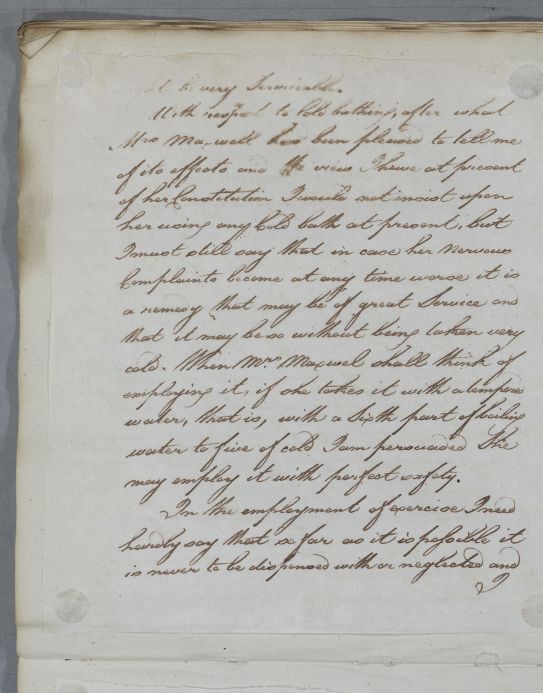 be very Serviceable.
With respect to Cold bathing, after what
Mrs Maxwell has been pleased to tell me
of its effects and the view I have at present
of her Constitution I would not insist upon
her using any Cold bath at present, but
I must still say that in case her nervous
Complaints become at any time worse it is
a remedy that may be of great Service and
that it may be so without being taken very
cold. When Mrs Maxwel shall think of
employing it, if she takes it with a tempered
water, that is, with a Sixth part of boiling
water to five of cold I am persuaded She
may employ it with perfect safety.
In the employment of exercise I need
hardly say that so far as it is possible it
is never to be dispensed with or neglected and
I